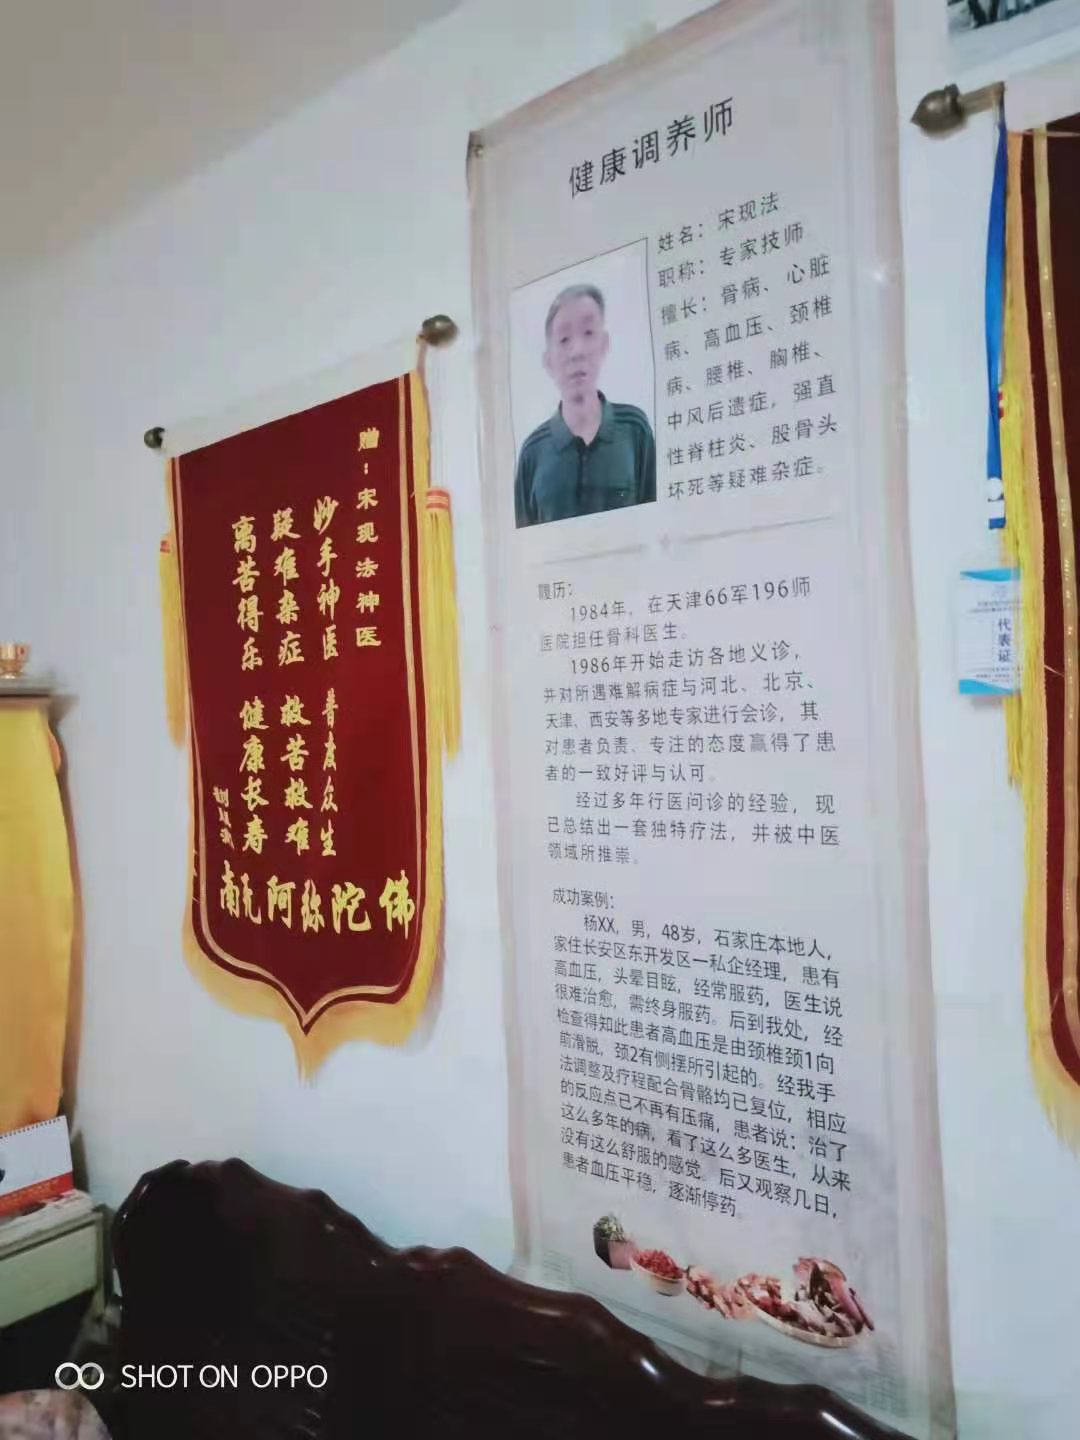 健康调养师
姓名：宋现法
职称：专家技师
擅长：骨病、心脏
病、高血压、颈椎
病、腰椎、胸椎、
中风后遗症，强直
性脊柱炎、股骨头
坏死等疑难杂症。
履历：
1984年，在天津66军196师
医院担任骨科医生。
1986年开始走访各地义诊，
并对所遇难解病症与河北、北京、
天津、西安等多地专家进行会诊，其
对患者负责、专注的态度赢得了患
者的一致好评与认可。
经过多年行医问诊的经验，现
已总结出一套独特疗法，并被中医
领域所推崇。
成功案例：
杨XX，男，48岁，石家庄本地人，
家住长安区东开发区一私企经理，患有
高血压，头晕目眩，经常服药，医生说
很难治愈，需终身服药。后到我处，经
检查得知此患者高血压是由颈椎颈1向
前滑脱，颈2有侧摆所引起的。经我手
法调整及疗程配合骨骼均已复位，相应
的反应点已不再有压痛，患者说：治了
这么多年的病，看了这么多医生，从来
没有这么舒服的感觉。后又观察几日，
患者血压平稳，逐渐停药。
赠：宋现法神医
妙手神医 普度众生
疑难杂症 救苦救难
离苦得乐 健康长寿
南无阿弥陀佛
代表证
SHOT ON OPPO